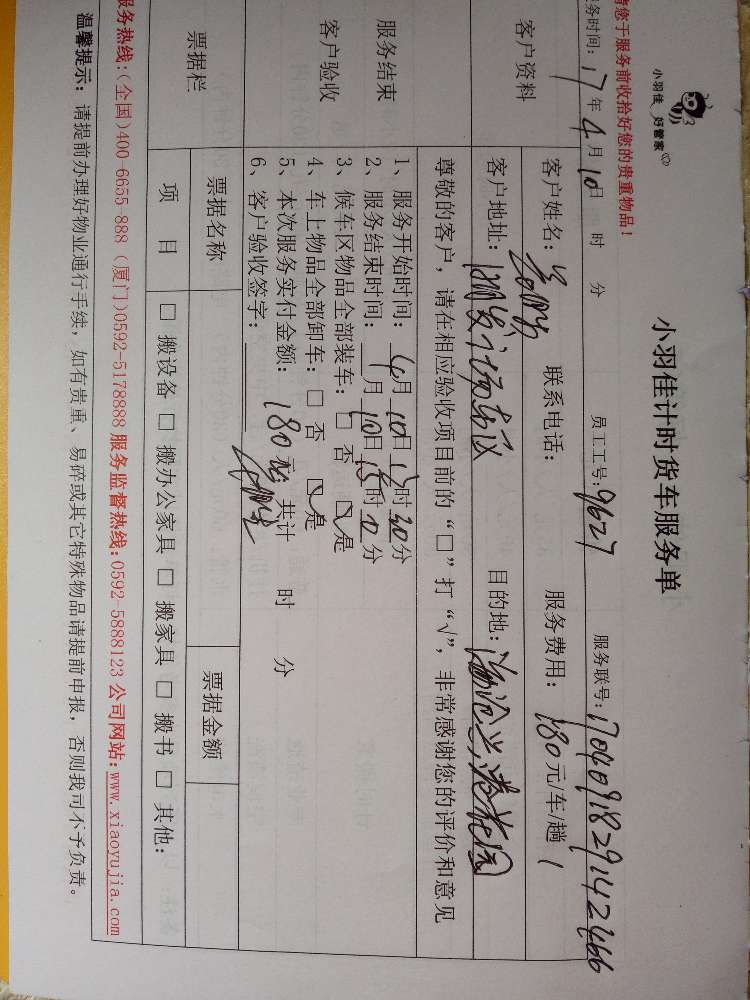 小羽佳 好管家
小羽佳计时货车服务单
请您于服务前收拾好您的贵重物品！
务时间：17年4月10日 时 分 员工工号：9627 服务联号：170409182914 2466
客户资料
客户姓名： 联系电话： 服务费用：180元/车/趟
客户地址： 目的地：
服务结束
客户验收
尊敬的客户，请在相应验收项目前的“□”打“√”，非常感谢您的评价和意见
1、服务开始时间：4月10日 时30分
2、服务结束时间： 月10日 时 分
3、候车区物品全部装车：□ 否 □ 是
4、车上物品全部卸车：□ 否 □ 是
5、本次服务实付金额：180元 共计 时 分
6、客户验收签字：
票据栏
票据名称 票据金额
项 目 □ 搬设备 □ 搬办公家具 □ 搬家具 □ 搬书 □ 其他：
服务热线：(全国)400-6655-888 (厦门)0592-5178888 服务监督热线：0592-5888123 公司网站：www.xiaoyujia.com
温馨提示：请提前办理好物业通行手续，如有贵重、易碎或其它特殊物品请提前申报，否则我司不予负责。